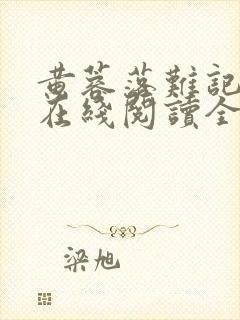 黄蓉落難記
在綫閱讀全
梁旭